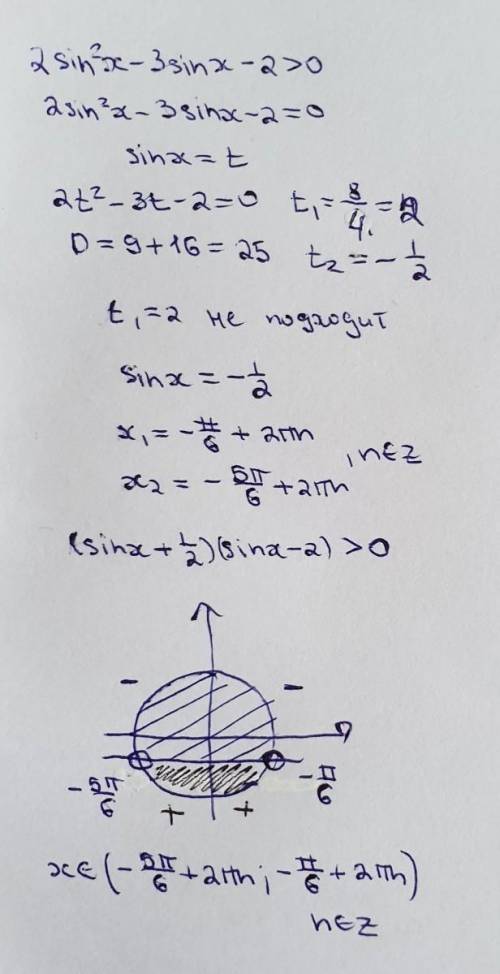 2sin²x - 3sinx - 2 > 0
2sin²x - 3sinx - 2 = 0
sinx = t
2t² - 3t - 2 = 0 t₁ = 8/4 = 2
D = 9 + 16 = 25 t₂ = - 1/2
t₁ = 2 не подходит
sinx = - 1/2
x₁ = - π/6 + 2πn
x₂ = - 5π/6 + 2πn , n∈Z
(sinx + 1/2)(sinx - 2) > 0
- -
- 5π/6 - π/6
+ +
x∈(- 5π/6 + 2πn; - π/6 + 2πn)
n∈Z